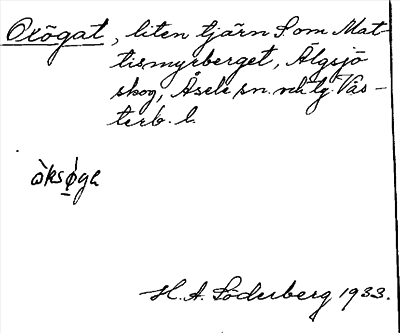 Oxögat, liten tjärn S om Mat-
tismyrberget, Älgsjö
skog, Åsele sn. och lg. Väs-
terb. l.
òksø̱ga
H. A. Söderberg 1933.